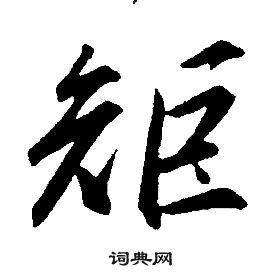 矩
词典网